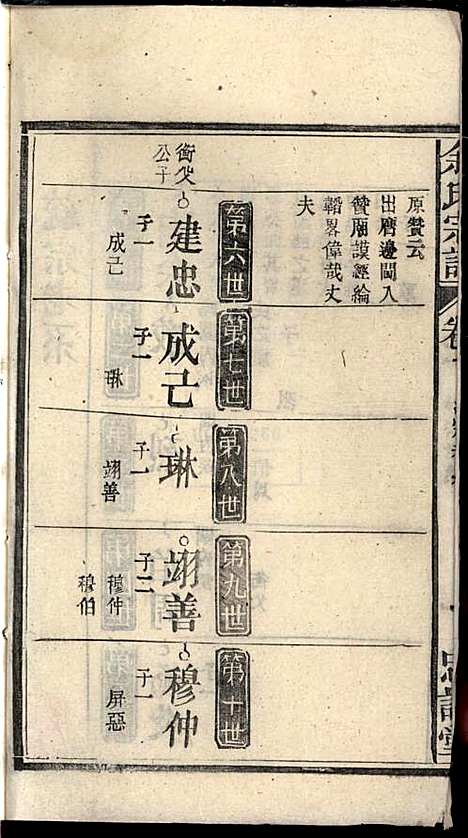 原贊云
出膺邊閫入
贊廟謨經綸
韜畧偉哉丈
夫
第六世
第七世
第八世
第九世
第十世
衡父公子
建忠
子一
成己
成己
子一
琳
琳
子一
翊善
翊善
子二
穆仲
穆伯
穆仲
子一
屏惡